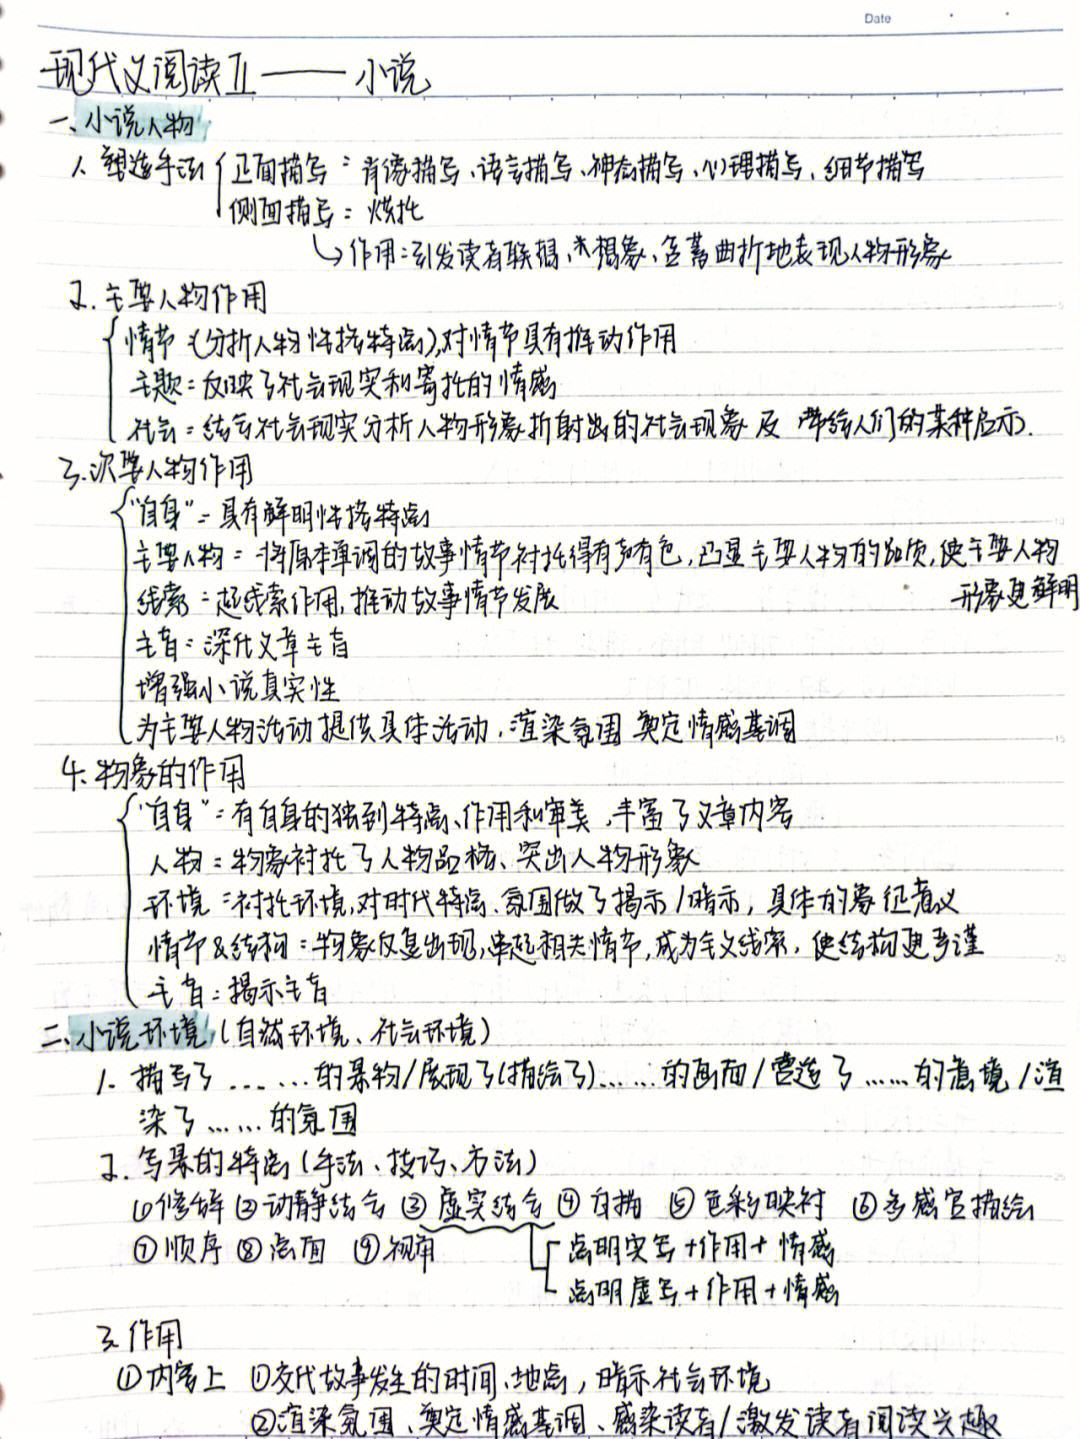 Date
现代文阅读Ⅱ——小说
一、小说人物
1. 塑造手法 正面描写：肖像描写、语言描写、神态描写、心理描写、细节描写
侧面描写：烘托
↳作用：引发读者联想、想象、含蓄曲折地表现人物形象
2. 主要人物作用
情节：(分析人物性格特点),对情节具有推动作用
主题：反映了社会现实和寄托的情感
社会：结合社会现实分析人物形象折射出的社会现象及 带给人们的某种启示.
3. 次要人物作用
“自身”：具有鲜明性格特点
主要人物：将原本单调的故事情节衬托得有声有色,凸显主要人物的品质,使主要人物
形象更鲜明
线索：起线索作用,推动故事情节发展
主旨：深化文章主旨
增强小说真实性
为主要人物活动提供具体活动,渲染氛围 奠定情感基调
4. 物象的作用
“自身”：有自身的独到特点、作用和审美,丰富了文章内容
人物：物象衬托了人物品格、突出人物形象
环境：衬托环境,对时代特点、氛围做了揭示/暗示,具体的象征意义
情节&结构：物象反复出现,串起相关情节,成为主义线索,使结构更严谨
主旨：揭示主旨
二、小说环境(自然环境、社会环境)
1. 描写了……的景物/展现了(描绘了)……的画面/营造了……的意境/渲
染了……的氛围
2. 写景的特点(手法、技巧、方法)
①修辞 ②动静结合 ③虚实结合 ④白描 ⑤色彩映衬 ⑥多感官描绘
⑦顺序 ⑧点面 ⑨视角 点明实写+作用+情感
点明虚写+作用+情感
3. 作用
①内容上 ①交代故事发生的时间、地点,暗示社会环境
②渲染氛围、奠定情感基调、感染读者/激发读者阅读兴趣